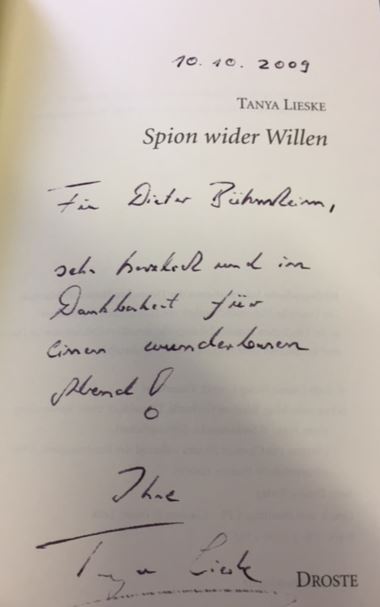 10.10.2009
TANYA LIESKE
Spion wider Willen
Für Dieter
sehr herzlich und in
Dankbarkeit für
einen wunderbaren
Abend!
Ihre
Tanya Lieske
DROSTE